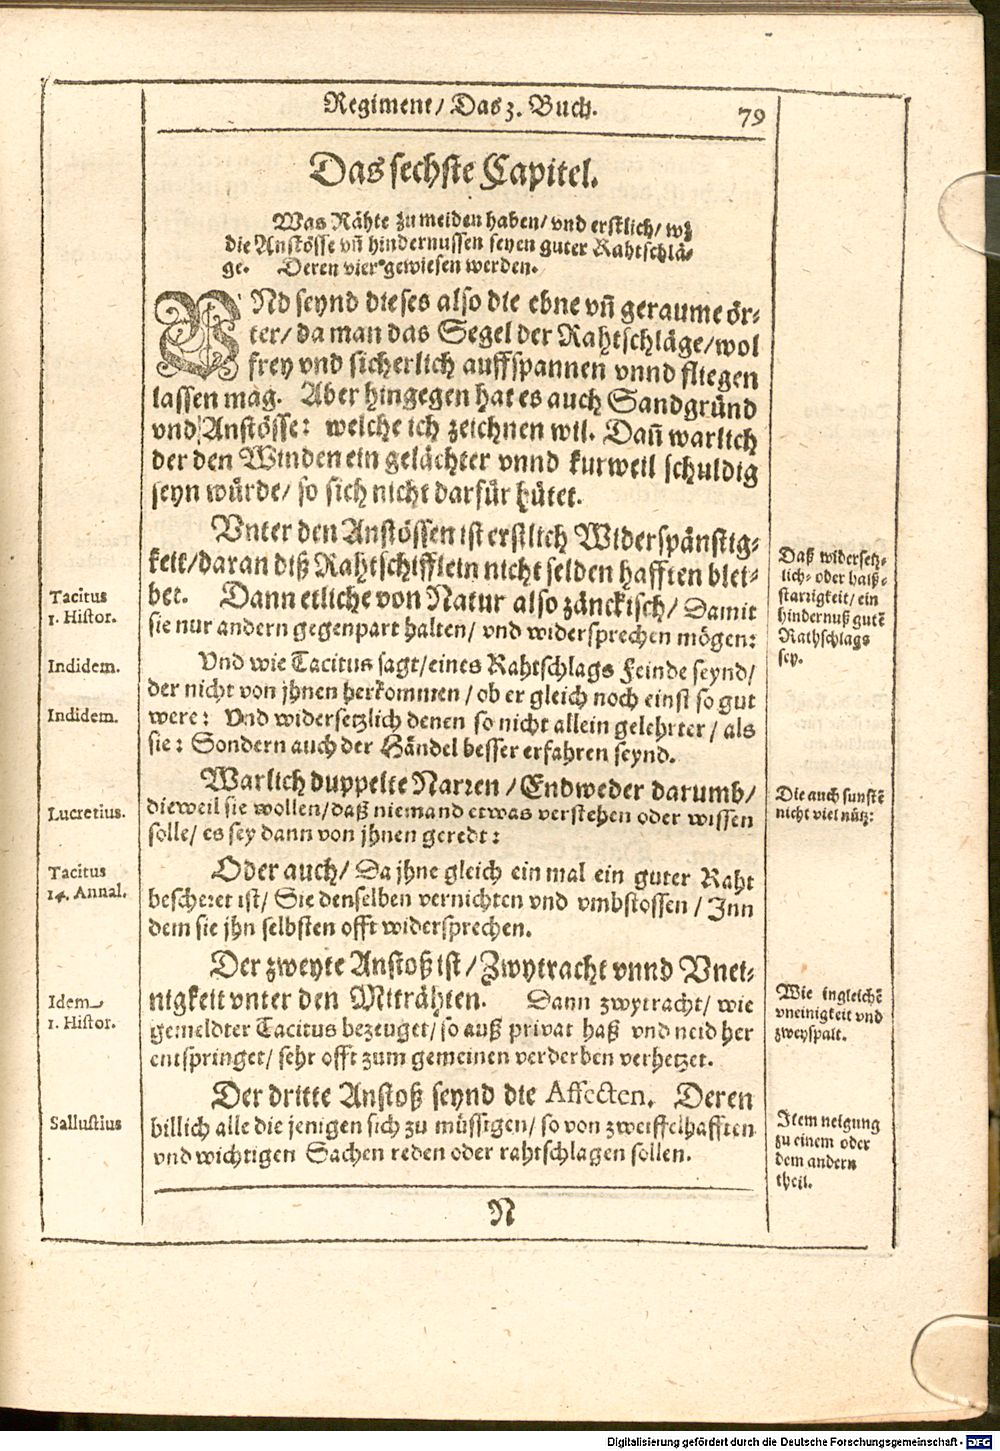 Regiment/ Das 3. Buch.
79
Das sechste Capitel.
Was Rähte zu meiden haben/ vnd erstlich/ wz
die Anstösse vñ hindernussen seyen guter Rahtschlä-
ge. Deren vier gewiesen werden.
VNd seynd dieses also die ebne vñ geraume ör-
ter/ da man das Segel der Rahtschläge/ wol
frey vnd sicherlich auffspannen vnnd fliegen
lassen mag. Aber hingegen hat es auch Sandgründ
vnd Anstösse: welche ich zeichnen wil. Dañ warlich
der den Winden ein gelächter vnnd kurweil schuldig
seyn würde/ so sich nicht darfür hütet.
Vnter den Anstössen ist erstlich Widerspänstig-
keit/ daran diß Rahtschifflein nicht selden hafften blei-
bet. Dann etliche von Natur also zänckisch/ Damit
sie nur andern gegenpart halten/ vnd widersprechen mögen:
Vnd wie Tacitus sagt/ eines Rahtschlags Feinde seynd/
der nicht von jhnen herkommen/ ob er gleich noch einst so gut
were: Vnd widersetzlich denen so nicht allein gelehrter/ als
sie: Sondern auch der Händel besser erfahren seynd.
Warlich duppelte Narren/ Endweder darumb/
dieweil sie wollen/ daß niemand etwas verstehen oder wissen
solle/ es sey dann von jhnen geredt:
Oder auch/ Da jhne gleich ein mal ein guter Raht
bescheret ist/ Sie denselben vernichten vnd vmbstossen/ Inn
dem sie jhn selbsten offt widersprechen.
Der zweyte Anstoß ist/ Zwytracht vnnd Vnei-
nigkeit vnter den Miträhten. Dann zwytracht/ wie
gemeldter Tacitus bezeuget/ so auß privat haß vnd neid her
entspringet/ sehr offt zum gemeinen verderben verhetzet.
Der dritte Anstoß seynd die Affecten. Deren
billich alle die jenigen sich zu müssigen/ so von zweiffelhafften
vnd wichtigen Sachen reden oder rahtschlagen sollen.
N
Tacitus
1. Histor.
Indidem.
Indidem.
Lucretius.
Tacitus
14. Annal.
Idem
1. Histor.
Sallustius
Daß widersetz-
lich- oder halß-
starrigkeit/ ein
hindernuß gutẽ
Rathschlags
sey.
Die auch sunstẽ
nicht viel nütz:
Wie ingleichẽ
vneinigkeit vnd
zweyspalt.
Item neigung
zu einem oder
dem andern
theil.
Digitalisierung gefördert durch die Deutsche Forschungsgemeinschaft - DFG